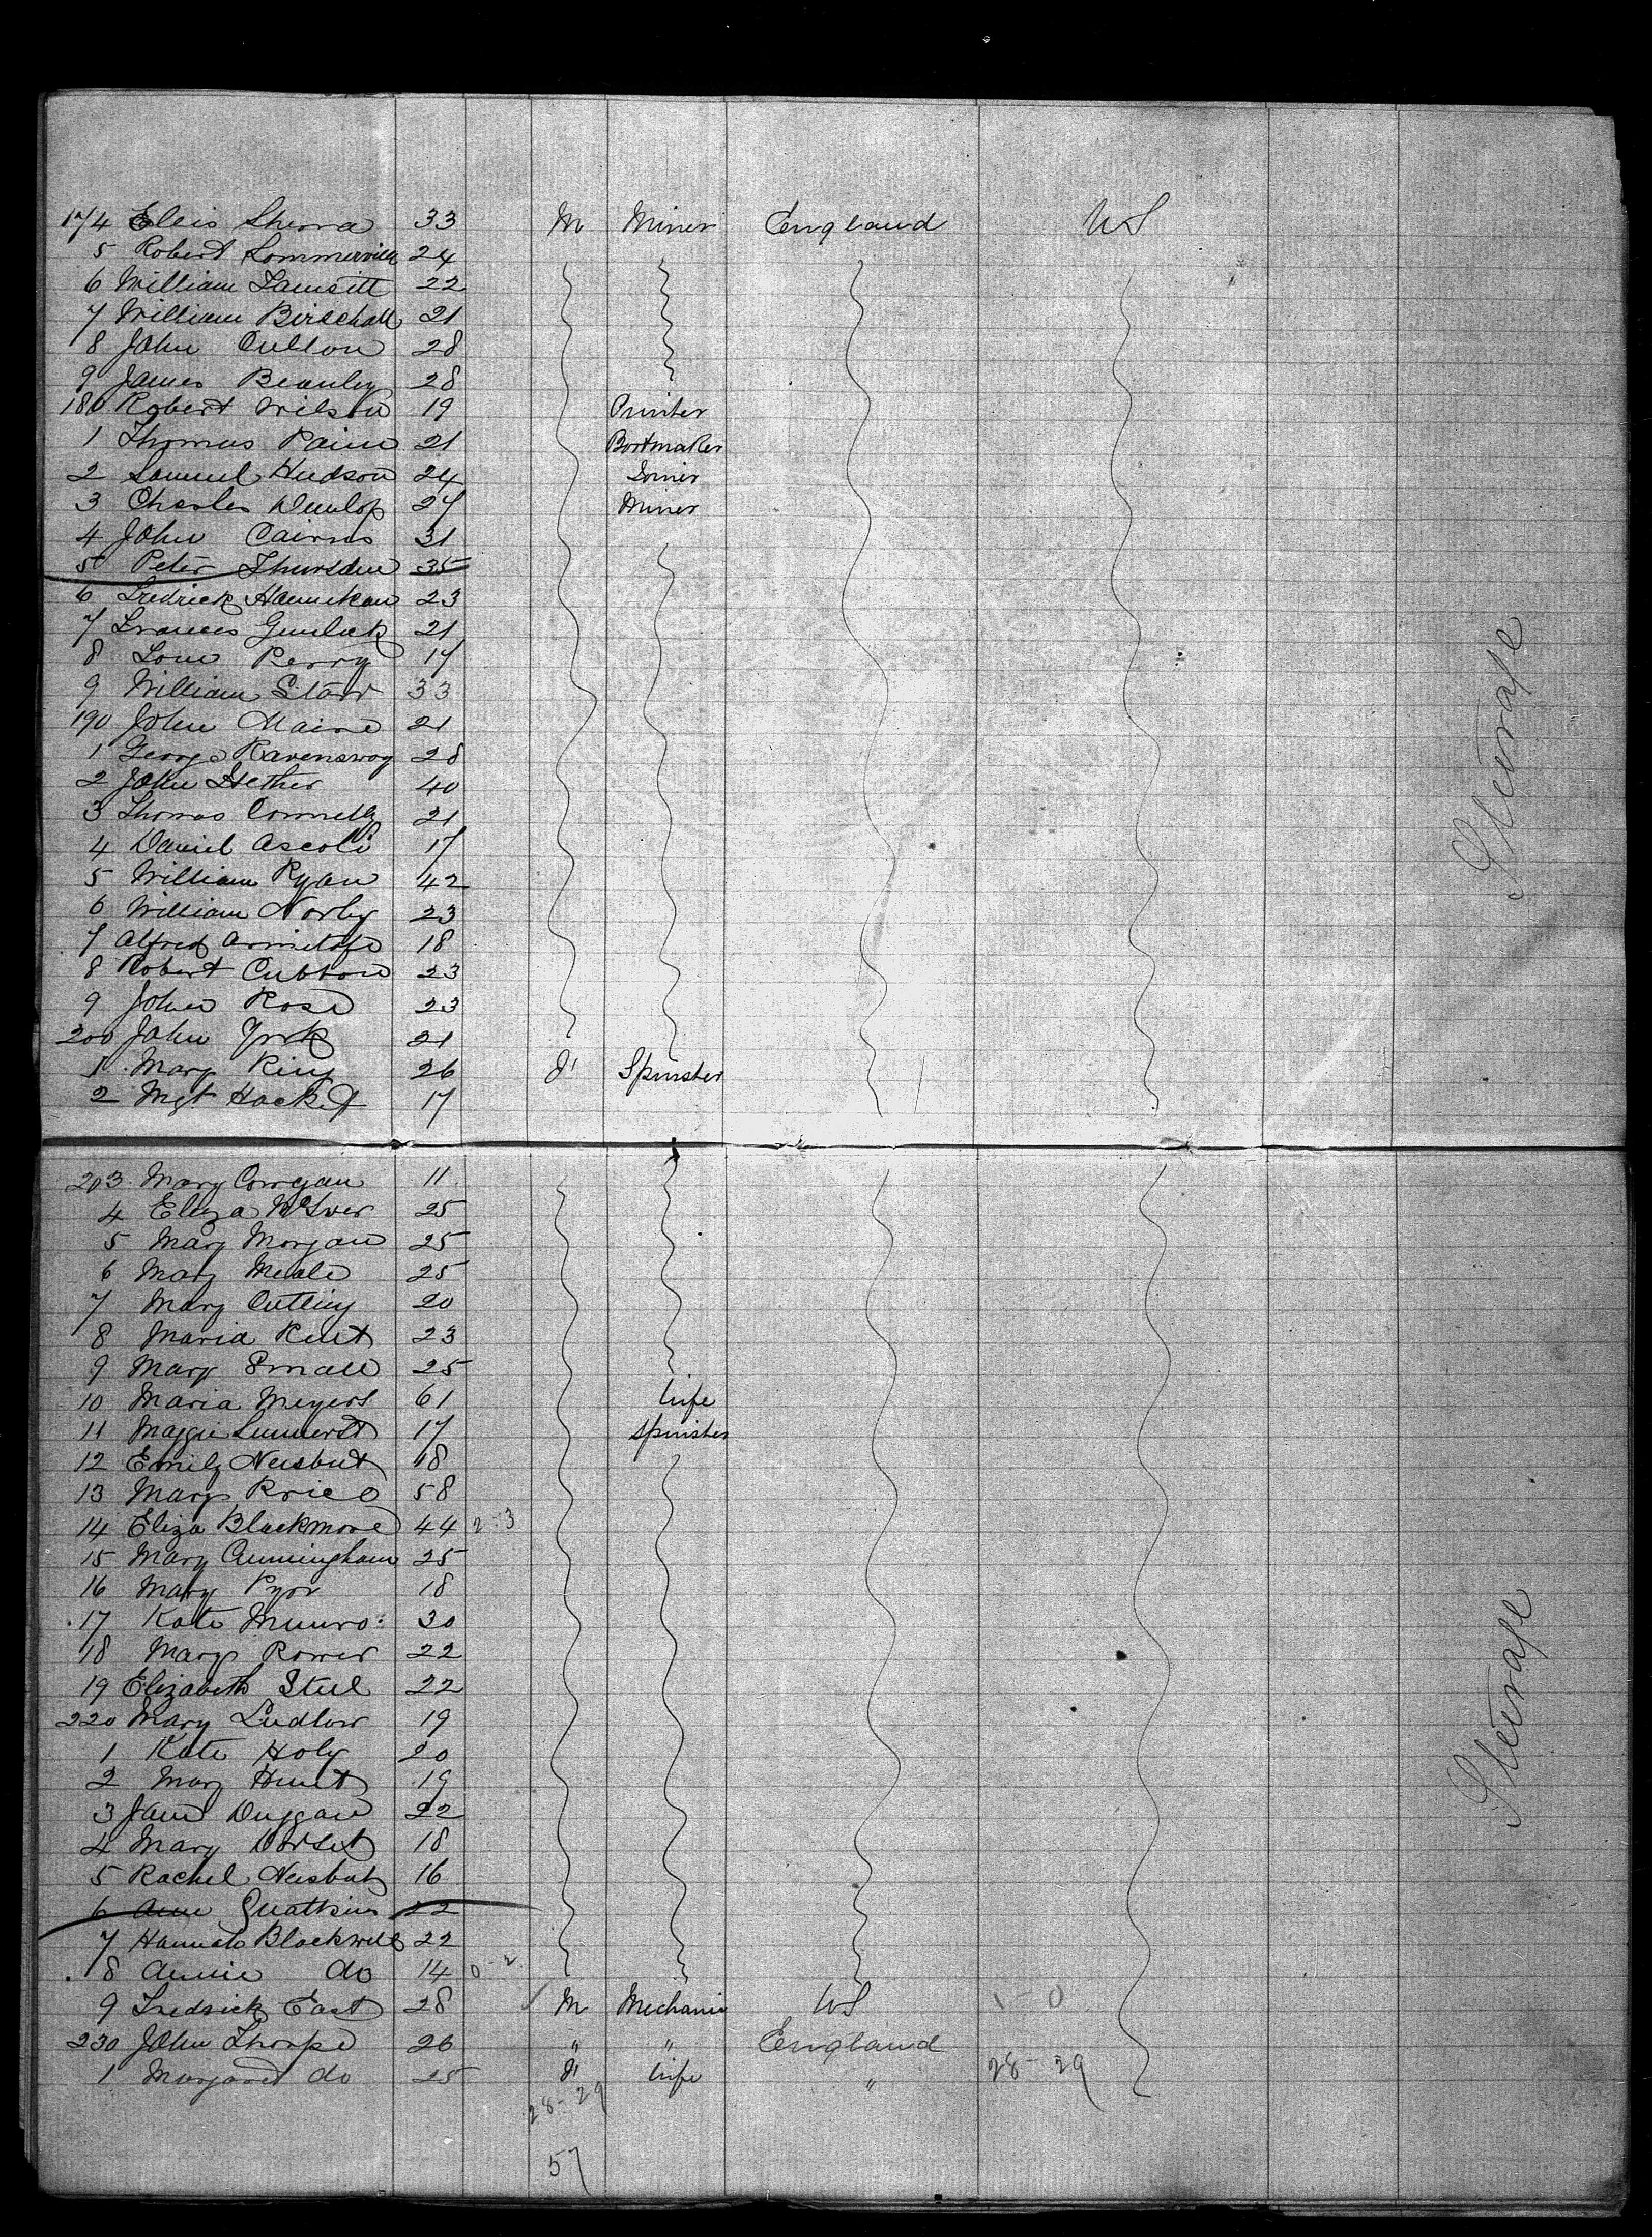 174 Ellis Sherra 33 M Miner England US
5 Robert Sommerville 24
6 William 22
7 William Birschall 21
8 John Cullon 28
9 James Beanley 28
180 Robert Wilson 19 Printer
1 Thomas Paine 21 Bootmaker
2 Samuel Hudson 24 Joiner
3 Charles Dunlop 27 Miner
4 John Cairns 31
5 Peter Thursden 35
6 Fredrick 23
7 Frances 21
8 Tom Perry 17
9 William Starr 33
190 John Maine 21
1 George Ravensway 28
2 John 40
3 Thomas Connelly 21
4 Daniel Ascoli 17
5 William Ryan 42
6 William Norby 23
7 Alfred Armitage 18
8 Robert Cubbon 23
9 John Rose 23
200 John York 21
1 Mary King 26 F Spinster
2 Mgt Hacket 17
Steerage
203 Mary Corrgan 11
4 Eliza McIver 25
5 Mary Morgan 25
6 Mary Meale 25
7 Mary Cutling 20
8 Maria Kent 23
9 Mary Small 25
10 Maria Meyers 61 Wife
11 Maggie 17 Spinster
12 Emily Neisbut 18
13 Mary Price 58
14 Eliza Blackmore 44 2-3
15 Mary Cunningham 25
16 Mary Pyor 18
17 Kate Munro 30
18 Mary Rower 22
19 Elizabeth Steel 22
220 Mary Ludlow 19
1 Kate Holy 20
2 Mary Hunt 19
3 Jane Duggan 22
4 Mary Dorset 18
5 Rachel Neisbut 16
6 Ann 22
7 Hannah Blackwell 22
8 Annie do 14 0-2
9 Fredrick East 28 M Mechanic US 1-0
230 John Thorpe 26 " " England
1 Margaret do 25 F Wife " 28-29
28-29
57
Steerage